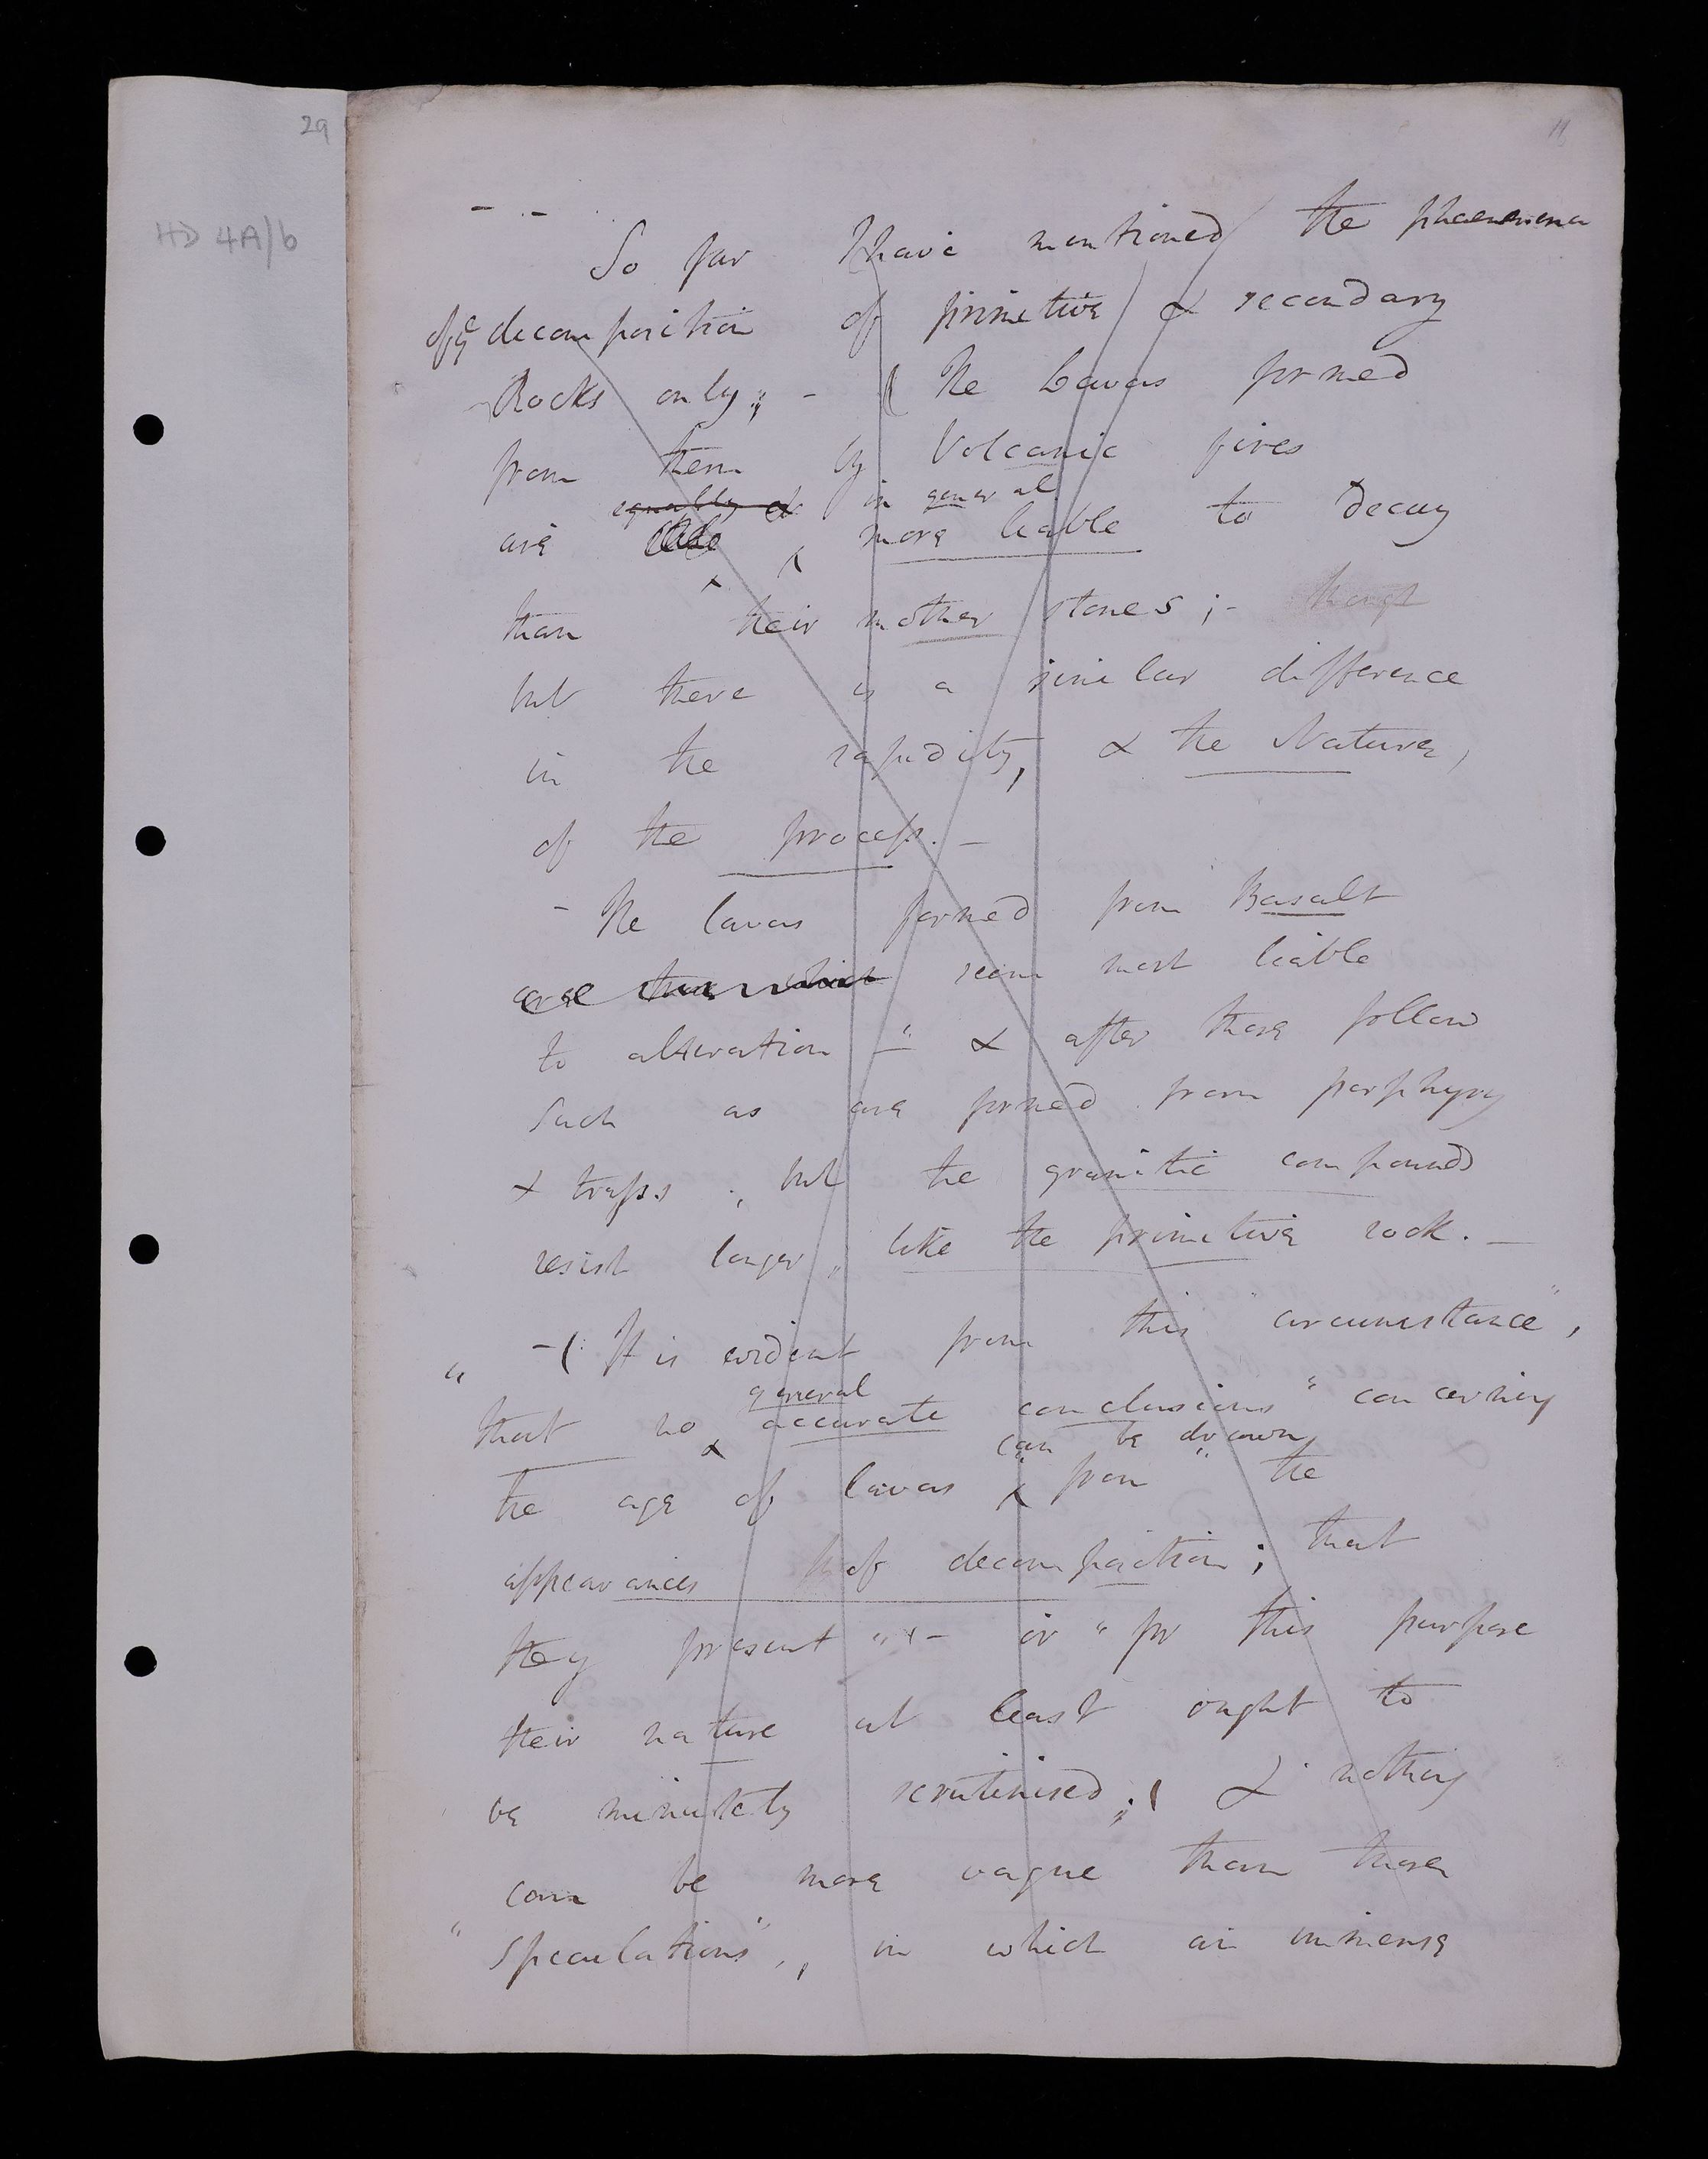 29
11
HD 4A/b
So far I have mentioned the phaenomena
of ye decomposition of primitive & secondary
Rocks only; - The Lavas formed
from them by Volcanic fires
equally in general
are more liable to decay
than their mother stones; - though
but there is a similar difference
in the rapidity, & the Nature,
of the process. -
- The lavas formed from Basalt
are those which seem most liable
to alteration - " & after these follow
Such as are formed from porphyry
& trapps, but the granitic compounds
resist longer, like the primitive rock. -
" - (: It is evident from this circumstance",
general
that no accurate conclusions " concerning
can be drawn
the age of lavas from " the
appearances of decomposition; that
they present " - or " for this purpose
their nature at least ought to
be minutely scrutinised; & nothing
can be more vague than those
" Speculations", in which an immense